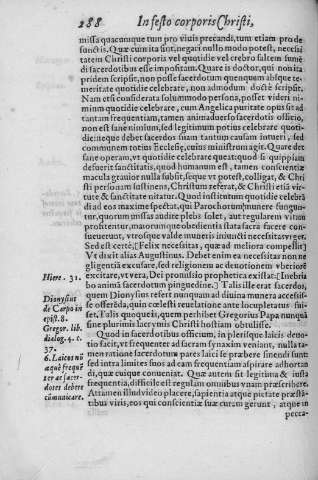 288 In festo corporis Christi,
missa quacunque tum pro vivis precandi, tum etiam pro de-
functis. Quæ cum ita sint, negari nullo modo potest, necessi-
tatem Christi corporis vel quotidie vel crebro saltem sumē-
di sacerdotibus esse impositam. Quare is doctor, qui non ita
pridem scripsit, non posse sacerdotum quenquam absque te-
meritate quotidie celebrare, non admodum doctè scripsit.
Nam etsi considerata solummodo persona, posset videri ni-
mium quotidie celebrare, cum Angelica puritate opus sit ad
tantam frequentiam, tamen animadverso sacerdotis officio,
non est sanè nimium, sed legitimum potius celebrare quoti-
die: neque debet sacerdos suam tantum causam intueri, sed
communem totius Ecclesiæ, cuius ministrum agit. Quare det
sanè operam, vt quotidie celebrare queat: quod si quippiam
defuerit sanctitatis, quod humanum est, tamen conscientiæ
macula graviore nulla subsit, seque vt potest, colligat, & Chri-
sti personam sustinens, Christum referat, & Christi etiā vir-
tute & sanctitate nitatur. Quod institutum quotidie celebrā
di ad eos maxime spectat, qui Parochorum munere fungun-
tur, quorum missas audire plebs solet, aut regularem vitam
profitentur, maiorum que obedientia stata sacra facere con-
sueverunt, vtrosque valde muneris iniuncti necessitas vrget.
Sed est certè, [Felix necessitas, quæ ad meliora compellit]
Vt dixit alias Augustinus. Debet enim ea necessitas non ne-
gligentiâ excusare, sed religionem ac devotionem vberiorē
excitare, vt vera, Dei promissio prophetica existat: [Inebria-
bo animā sacerdotum pinguedine.] Talis ille erat sacerdos,
quem Dionysius refert nunquam ad divina munera accessis-
se offerenda, quin cœlesti revelatione ante locupletatus fuis-
set. Talis quoque is, quem perhibet Gregorius Papa nunquā
sine plurimis lacrymis Christi hostiam obtulisse.
Quod in sacerdotibus officium, in plerisque laicis devo-
tio facit, vt frequenter ad sacram synaxim veniant, nulla ta-
men ratione sacerdotum pares laici se præbere sinendi sunt:
sed intra limites suos ad eam frequentiam aspirare adhortan-
di, quæ cuique conveniat. Quæ autem sit legitima & iusta
frequentia, difficile est regulam omnibus vnam præscribere.
Attamen illud video placere, sapientia atque pietate præstā-
tibus viris, eos qui conscientiæ suæ curam gerunt, atque in
pecca-
Hiere. 31.
Dionysius
de Carpo in
epist. 8.
Gregor. lib.
dialog. 4. c.
37.
6. Laicos nō
æquè frequē
ter ac sacer-
dotes debere
cōmunicare.